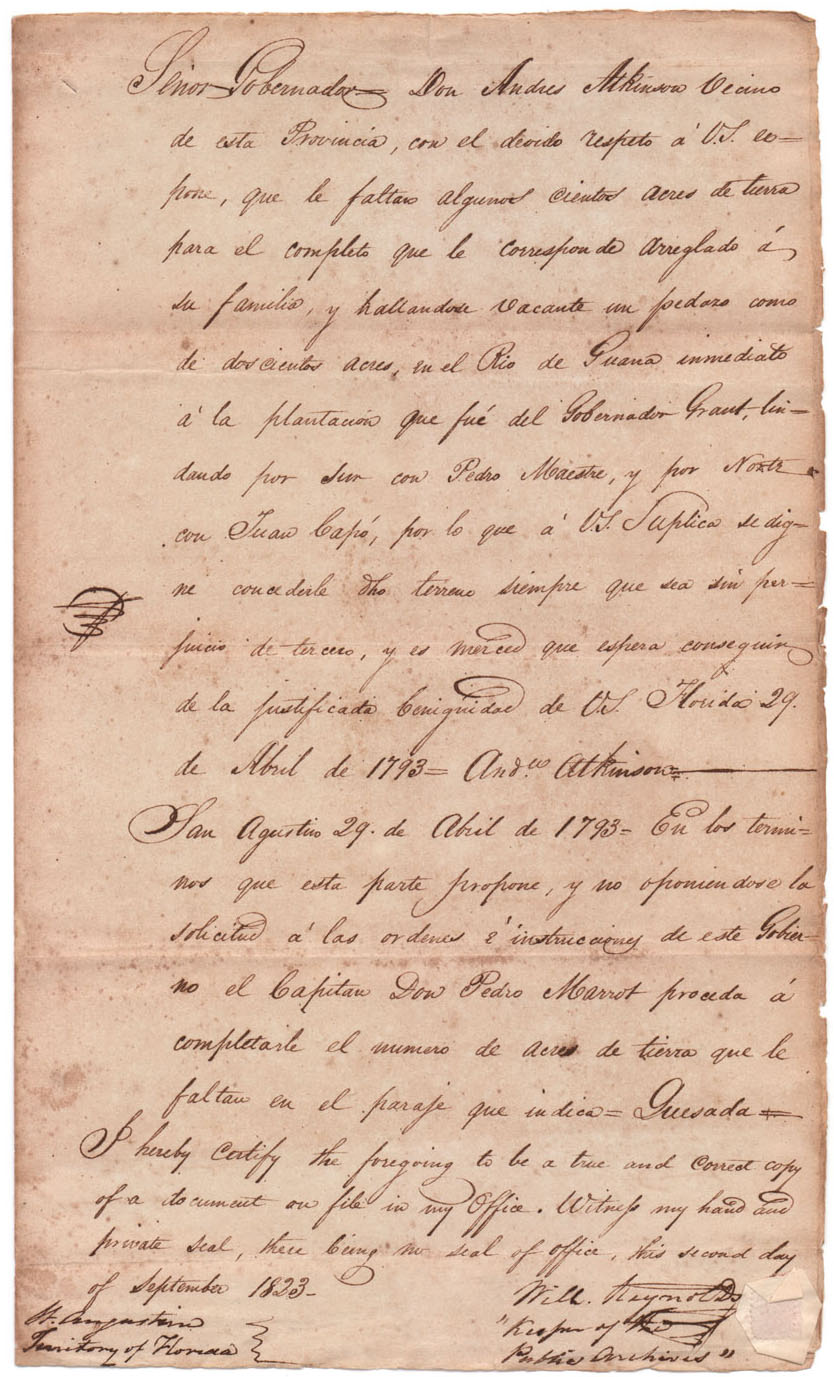 Señor Gobernador= Don Andres Atkinson Vecino
de esta Provincia, con el devido respeto á V.S. ex=
pone, que le faltan algunos cientos acres de tierra
para el completo que le corresponde arreglado á
su familia, y hallandose vacante un pedazo como
de doscientos acres, en el Rio de Guana inmediato
á la plantacion que fué del Gobernador Grant, lin=
dando por Sur con Pedro Maestre, y por Norte
con Juan Capó, por lo que á V.S. Suplica se dig=
ne concederle dho terreno siempre que sea sin per=
juicio de tercero, y es merced que espera conseguir
de la justificada benignidad de V.S. Florida 29.
de Abril de 1793= And.ew Atkinson=
San Agustin 29. de Abril de 1793= En los termi=
nos que esta parte propone, y no oponiendose la
solicitud á las ordenes é instrucciones de este Gobier=
no el Capitan Don Pedro Marrot proceda á
completarle el numero de acres de tierra que le
faltan en el paraje que indica= Quesada=
I hereby certify the foregoing to be a true and correct copy
of a document on file in my Office. Witness my hand and
private seal, there being no seal of office, this second day
of September 1823_
St. Augustine
Territory of Florida
Will. Reynolds
"Keeper of the
Public Archives"